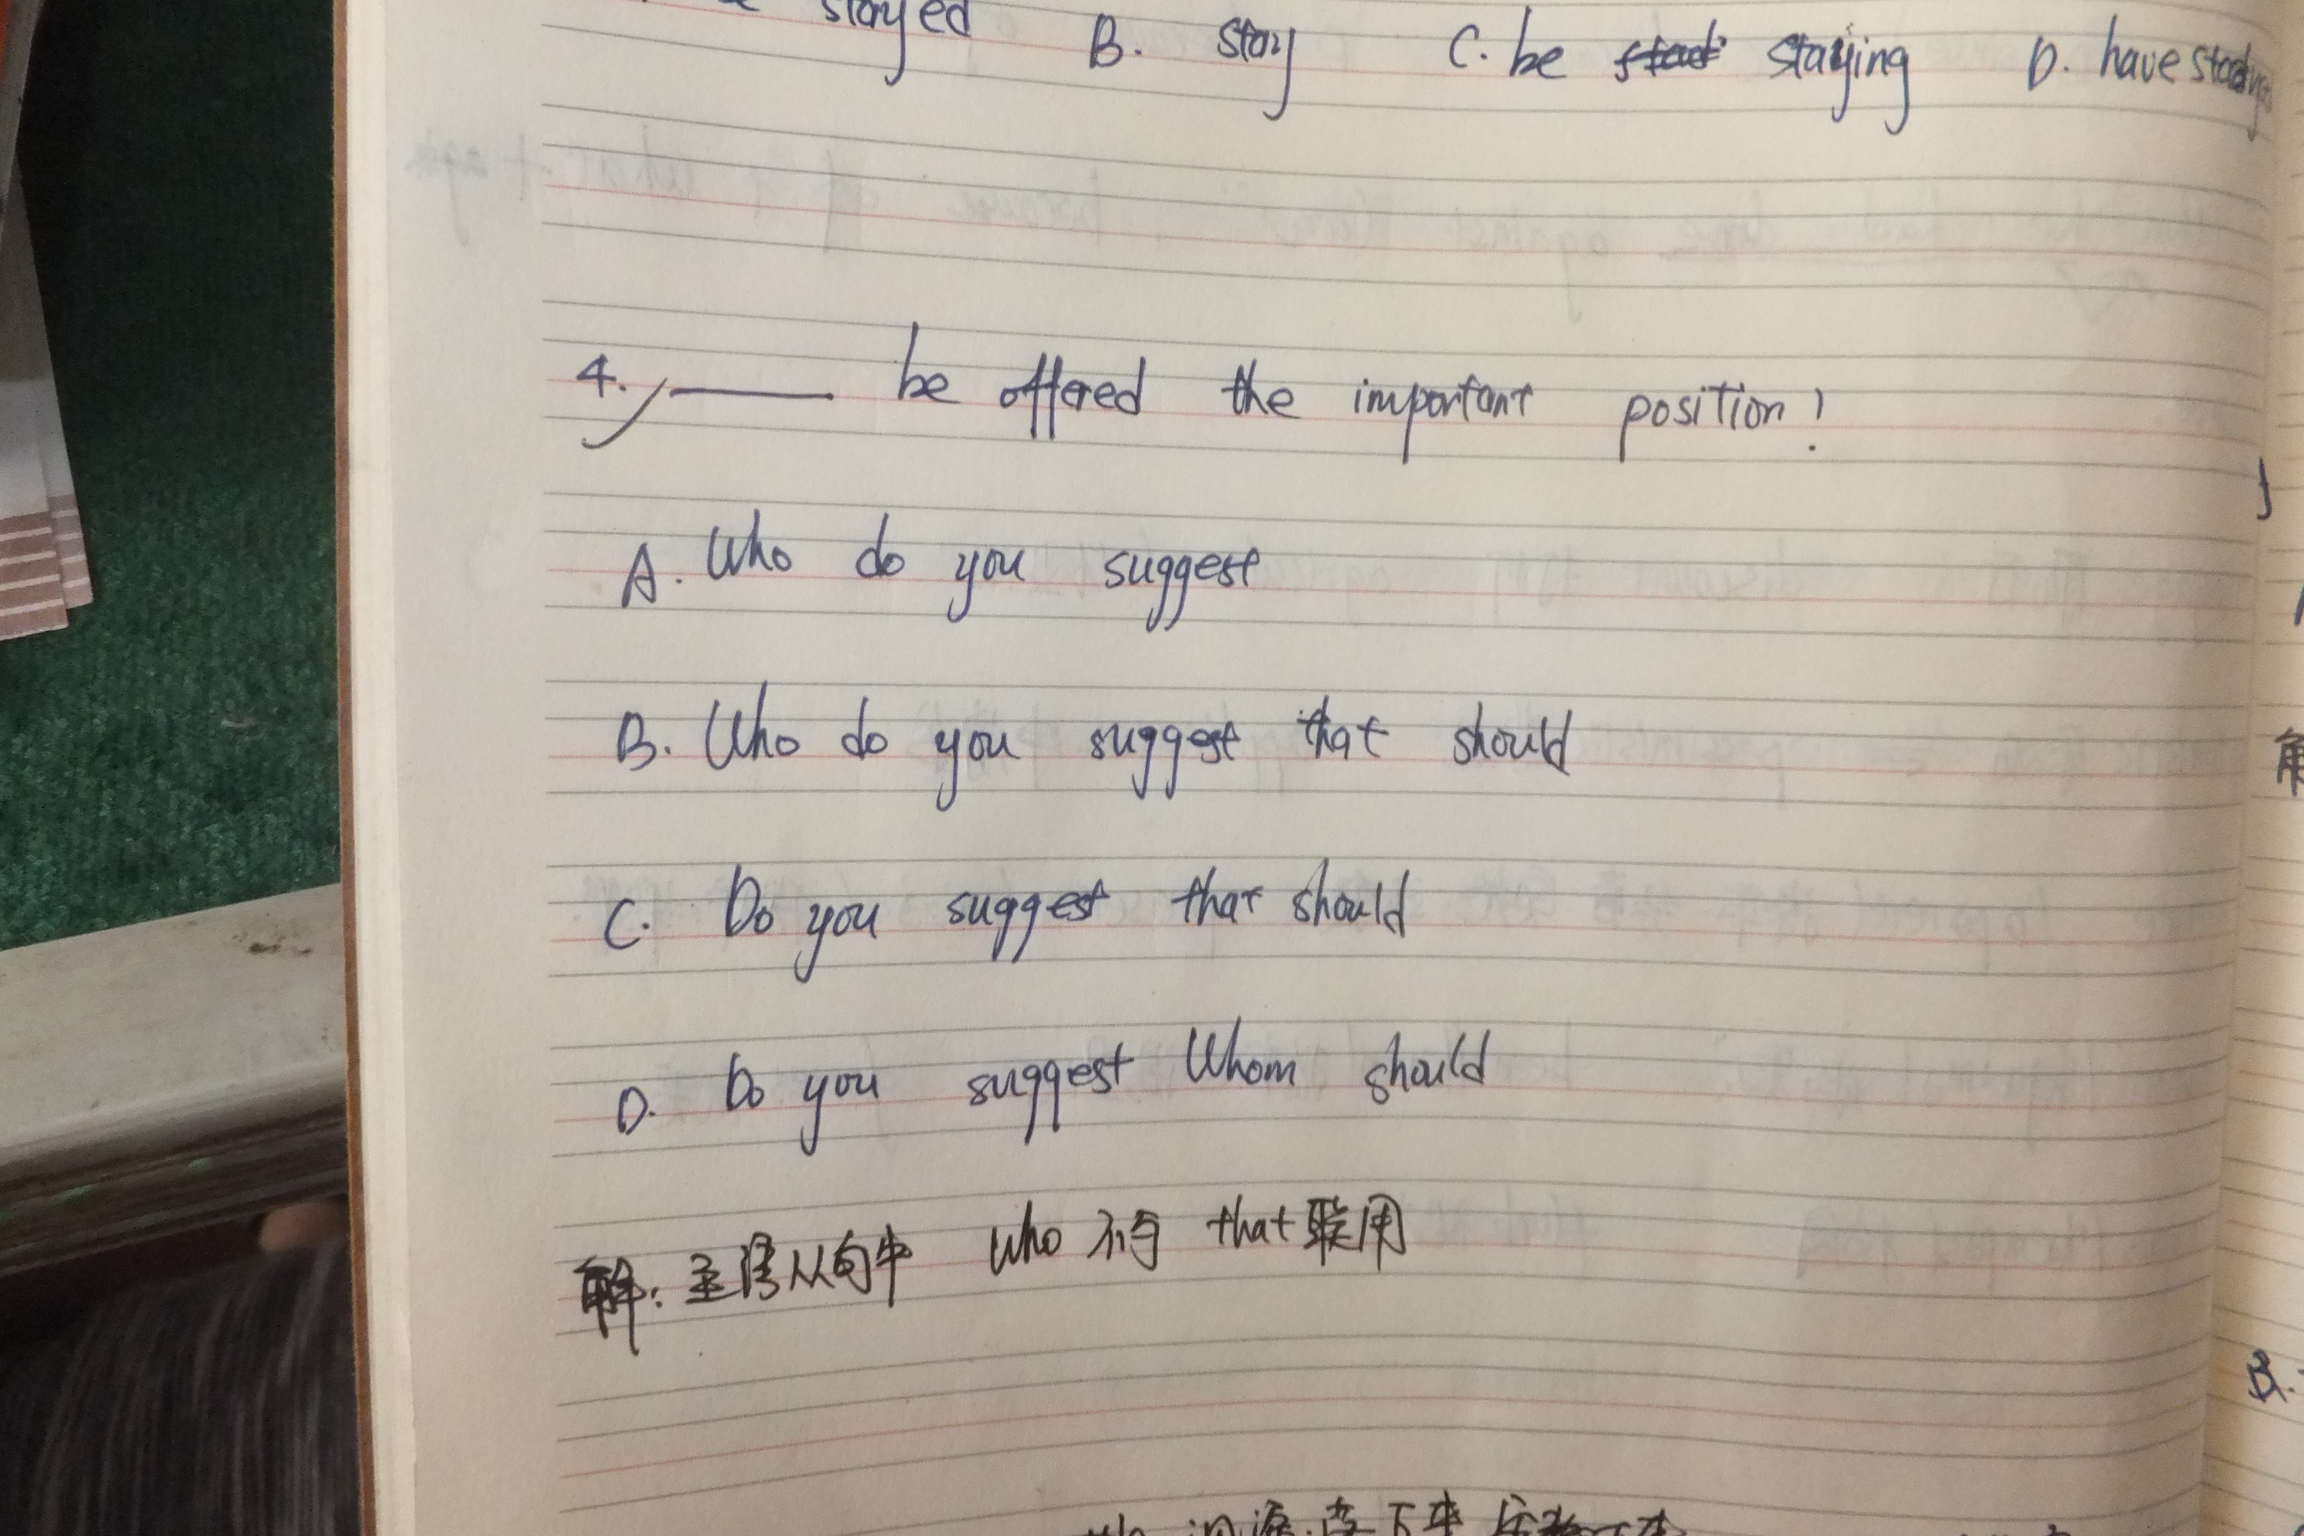 stayed B. stay C. be staying D. have
4. ____ be offered the important position?
A. Who do you suggest
B. Who do you suggest that should
C. Do you suggest that should
D. Do you suggest Whom should
解: 主语从句中 who 不与 that 联用
B.